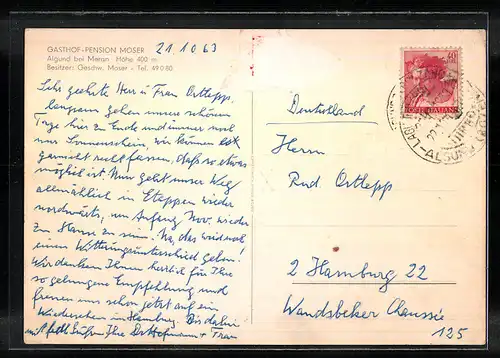 GASTHOF-PENSION MOSER
Algund bei Meran Höhe 400 m
Besitzer: Geschw. Moser - Tel. 49 0 80
21.10.63
Sehr geehrte Herr u Frau Ortlepp,
langsam gehen unsere schönen
Tage hier zu Ende und immer noch
nur Sonnenschein, wir können es
garnicht recht fassen, daß so etwas
möglich ist. Nun geht unser Weg
allmählich in Etappen wieder
nordwärts, um Anfang Nov. wieder
zu Hause zu sein. Na, das wird wohl
einen Witterungsunterschied geben!
Wir danken Ihnen herzlich für Ihre
so gelungene Empfehlung und
freuen uns schon jetzt auf ein
Wiedersehen in Hamburg. Bis dahin
Grüßen Ihre + Frau
40
POSTE ITALIANE
ALGUND
Deutschland
Herrn
Rud Ortlepp
2 Hamburg 22
Wandsbeker Chaussee
125